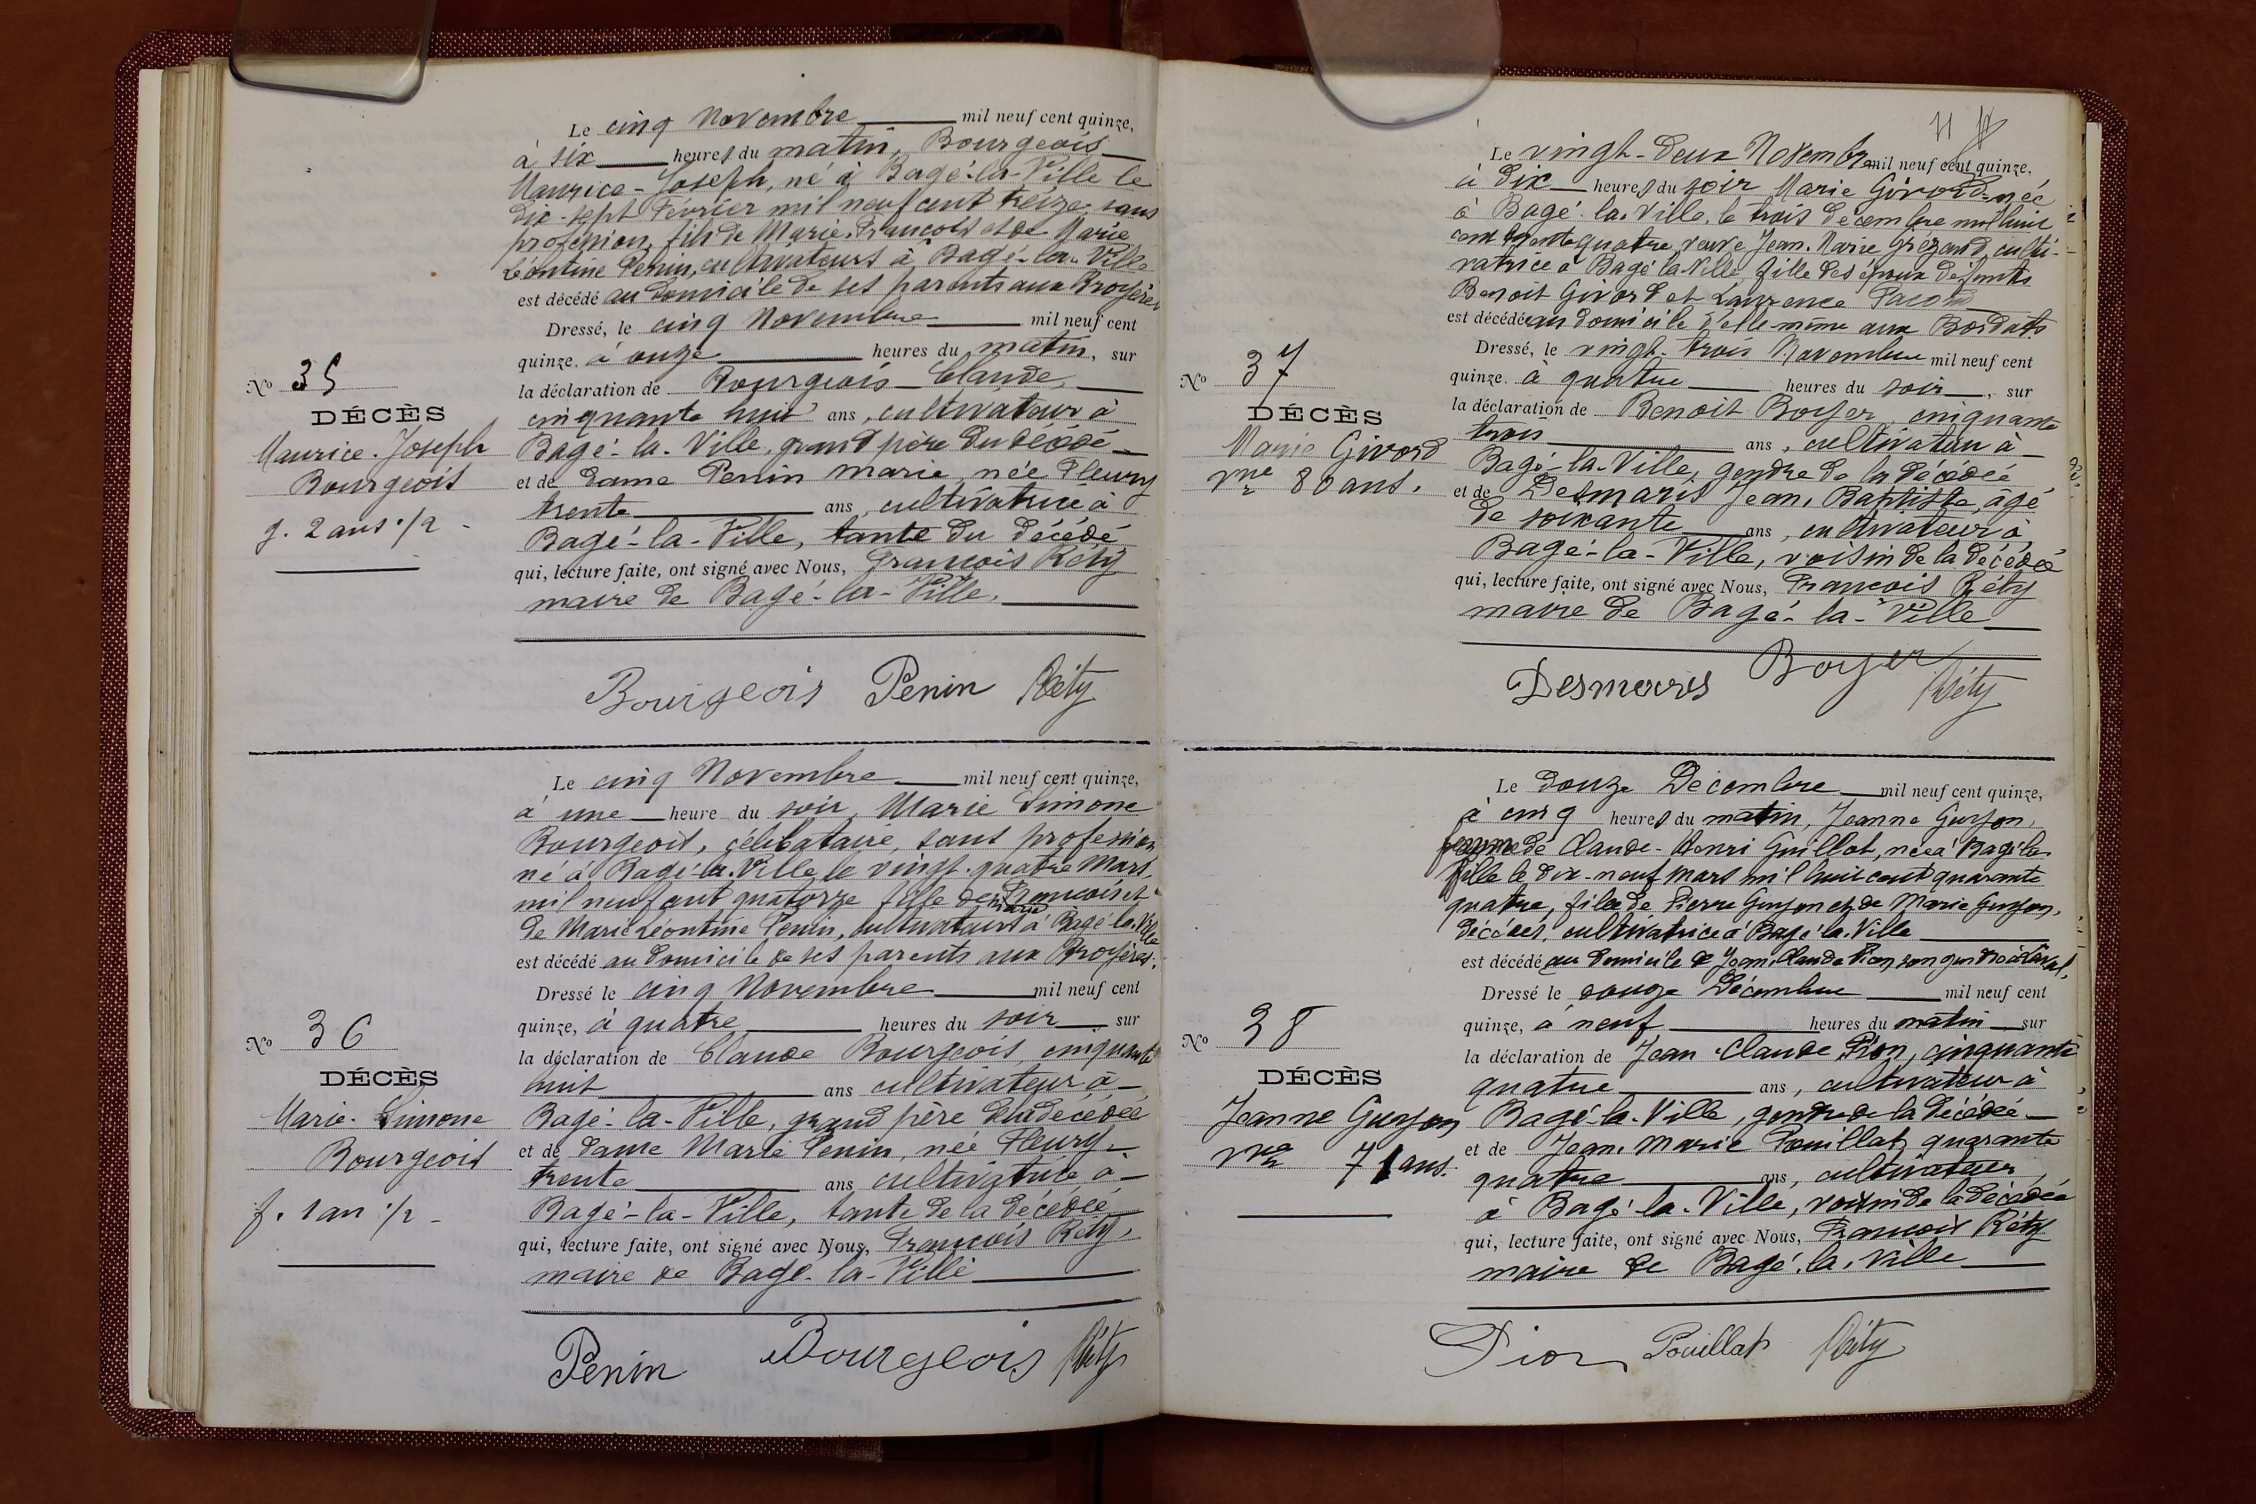 Le cinq Novembre mil neuf cent quinze,
à six heures du matin, Bourgeois
Maurice-Joseph, né à Bagé-la-Ville le
dix-sept Février mil neuf cent treize sans
profession, fils de Marie François et de Marie
Léontine Penin, cultivateurs à Bagé-la-Ville
est décédé au domicile de ses parents aux Broyères
Dressé, le cinq Novembre mil neuf cent
quinze. à onze heures du matin, sur
la déclaration de Bourgeois Claude,
cinquante huit ans, cultivateur à
Bagé-la-Ville, grand père du décédé
et de dame Penin Marie née Fleury
trente ans, cultivatrice à
Bagé-la-Ville, tante du décédé
qui, lecture faite, ont signé avec Nous, François Réty
maire de Bagé-la-Ville.
Bourgeois Penin Réty
No 35
DÉCÈS
Maurice-Joseph
Bourgeois
g. 2 ans 1/2
Le cinq Novembre mil neuf cent quinze,
à une heure du soir, Marie Simone
Bourgeois, célibataire, sans profession
né à Bagé-la-Ville le vingt-quatre Mars
mil neuf cent quatorze fille de Marie François et
de Marie Léontine Penin, cultivateurs à Bagé-la-Ville
est décédé au domicile de ses parents aux Broyères.
Dressé le cinq Novembre mil neuf cent
quinze, à quatre heures du soir sur
la déclaration de Claude Bourgeois, cinquante
huit ans cultivateur à
Bagé-la-Ville, grand père de la décédée
et de dame Marie Penin, née Fleury
trente ans cultivatrice à
Bagé-la-Ville, tante de la décédée
qui, lecture faite, ont signé avec Nous, François Réty,
maire de Bagé-la-Ville
Penin Bourgeois Réty
No 36
DÉCÈS
Marie-Simone
Bourgeois
f. 1 an 1/2
11
Le vingt-deux Novembre mil neuf cent quinze.
à dix heures du soir Marie Givord née
à Bagé-la-Ville, le trois décembre mil huit
cent trente quatre, veuve Jean-Marie Grézaud, culti-
vatrice à Bagé-la-Ville, fille des époux défunts
Benoit Givord et Laurence Pacoud
est décédée au domicile d'elle même aux Bordats
Dressé, le vingt-trois Novembre mil neuf cent
quinze. à quatre heures du soir, sur
la déclaration de Benoit Boyer, cinquante
trois ans, cultivateur à
Bagé-la-Ville, gendre de la décédée
et de Desmaris Jean-Baptiste, âgé
de soixante ans, cultivateur à
Bagé-la-Ville, voisin de la décédée
qui, lecture faite, ont signé avec Nous, François Réty
maire de Bagé-la-Ville
Desmaris Boyer Réty
No 37
DÉCÈS
Marie Givord
Vve 80 ans.
Le douze Décembre mil neuf cent quinze,
à cinq heures du matin, Jeanne Guyon,
femme de Claude-Henri Guillot, née à Bagé-la-
Ville le dix-neuf Mars mil huit cent quarante
quatre, fille de Pierre Guyon et de Marie Guyon,
décédés, cultivatrice à Bagé-la-Ville
est décédé au domicile de Jean-Claude Pion son gendre à Laval,
Dressé le douze Décembre mil neuf cent
quinze, à neuf heures du matin sur
la déclaration de Jean-Claude Pion, cinquante
quatre ans, cultivateur à
Bagé-la-Ville, gendre de la décédée
et de Jean-Marie Pouillat quarante
quatre ans, cultivateur
à Bagé-la-Ville, voisin de la décédée
qui, lecture faite, ont signé avec Nous, François Réty
maire de Bagé-la-Ville
Pion Pouillat Réty
No 38
DÉCÈS
Jeanne Guyon
Vve 71 ans.